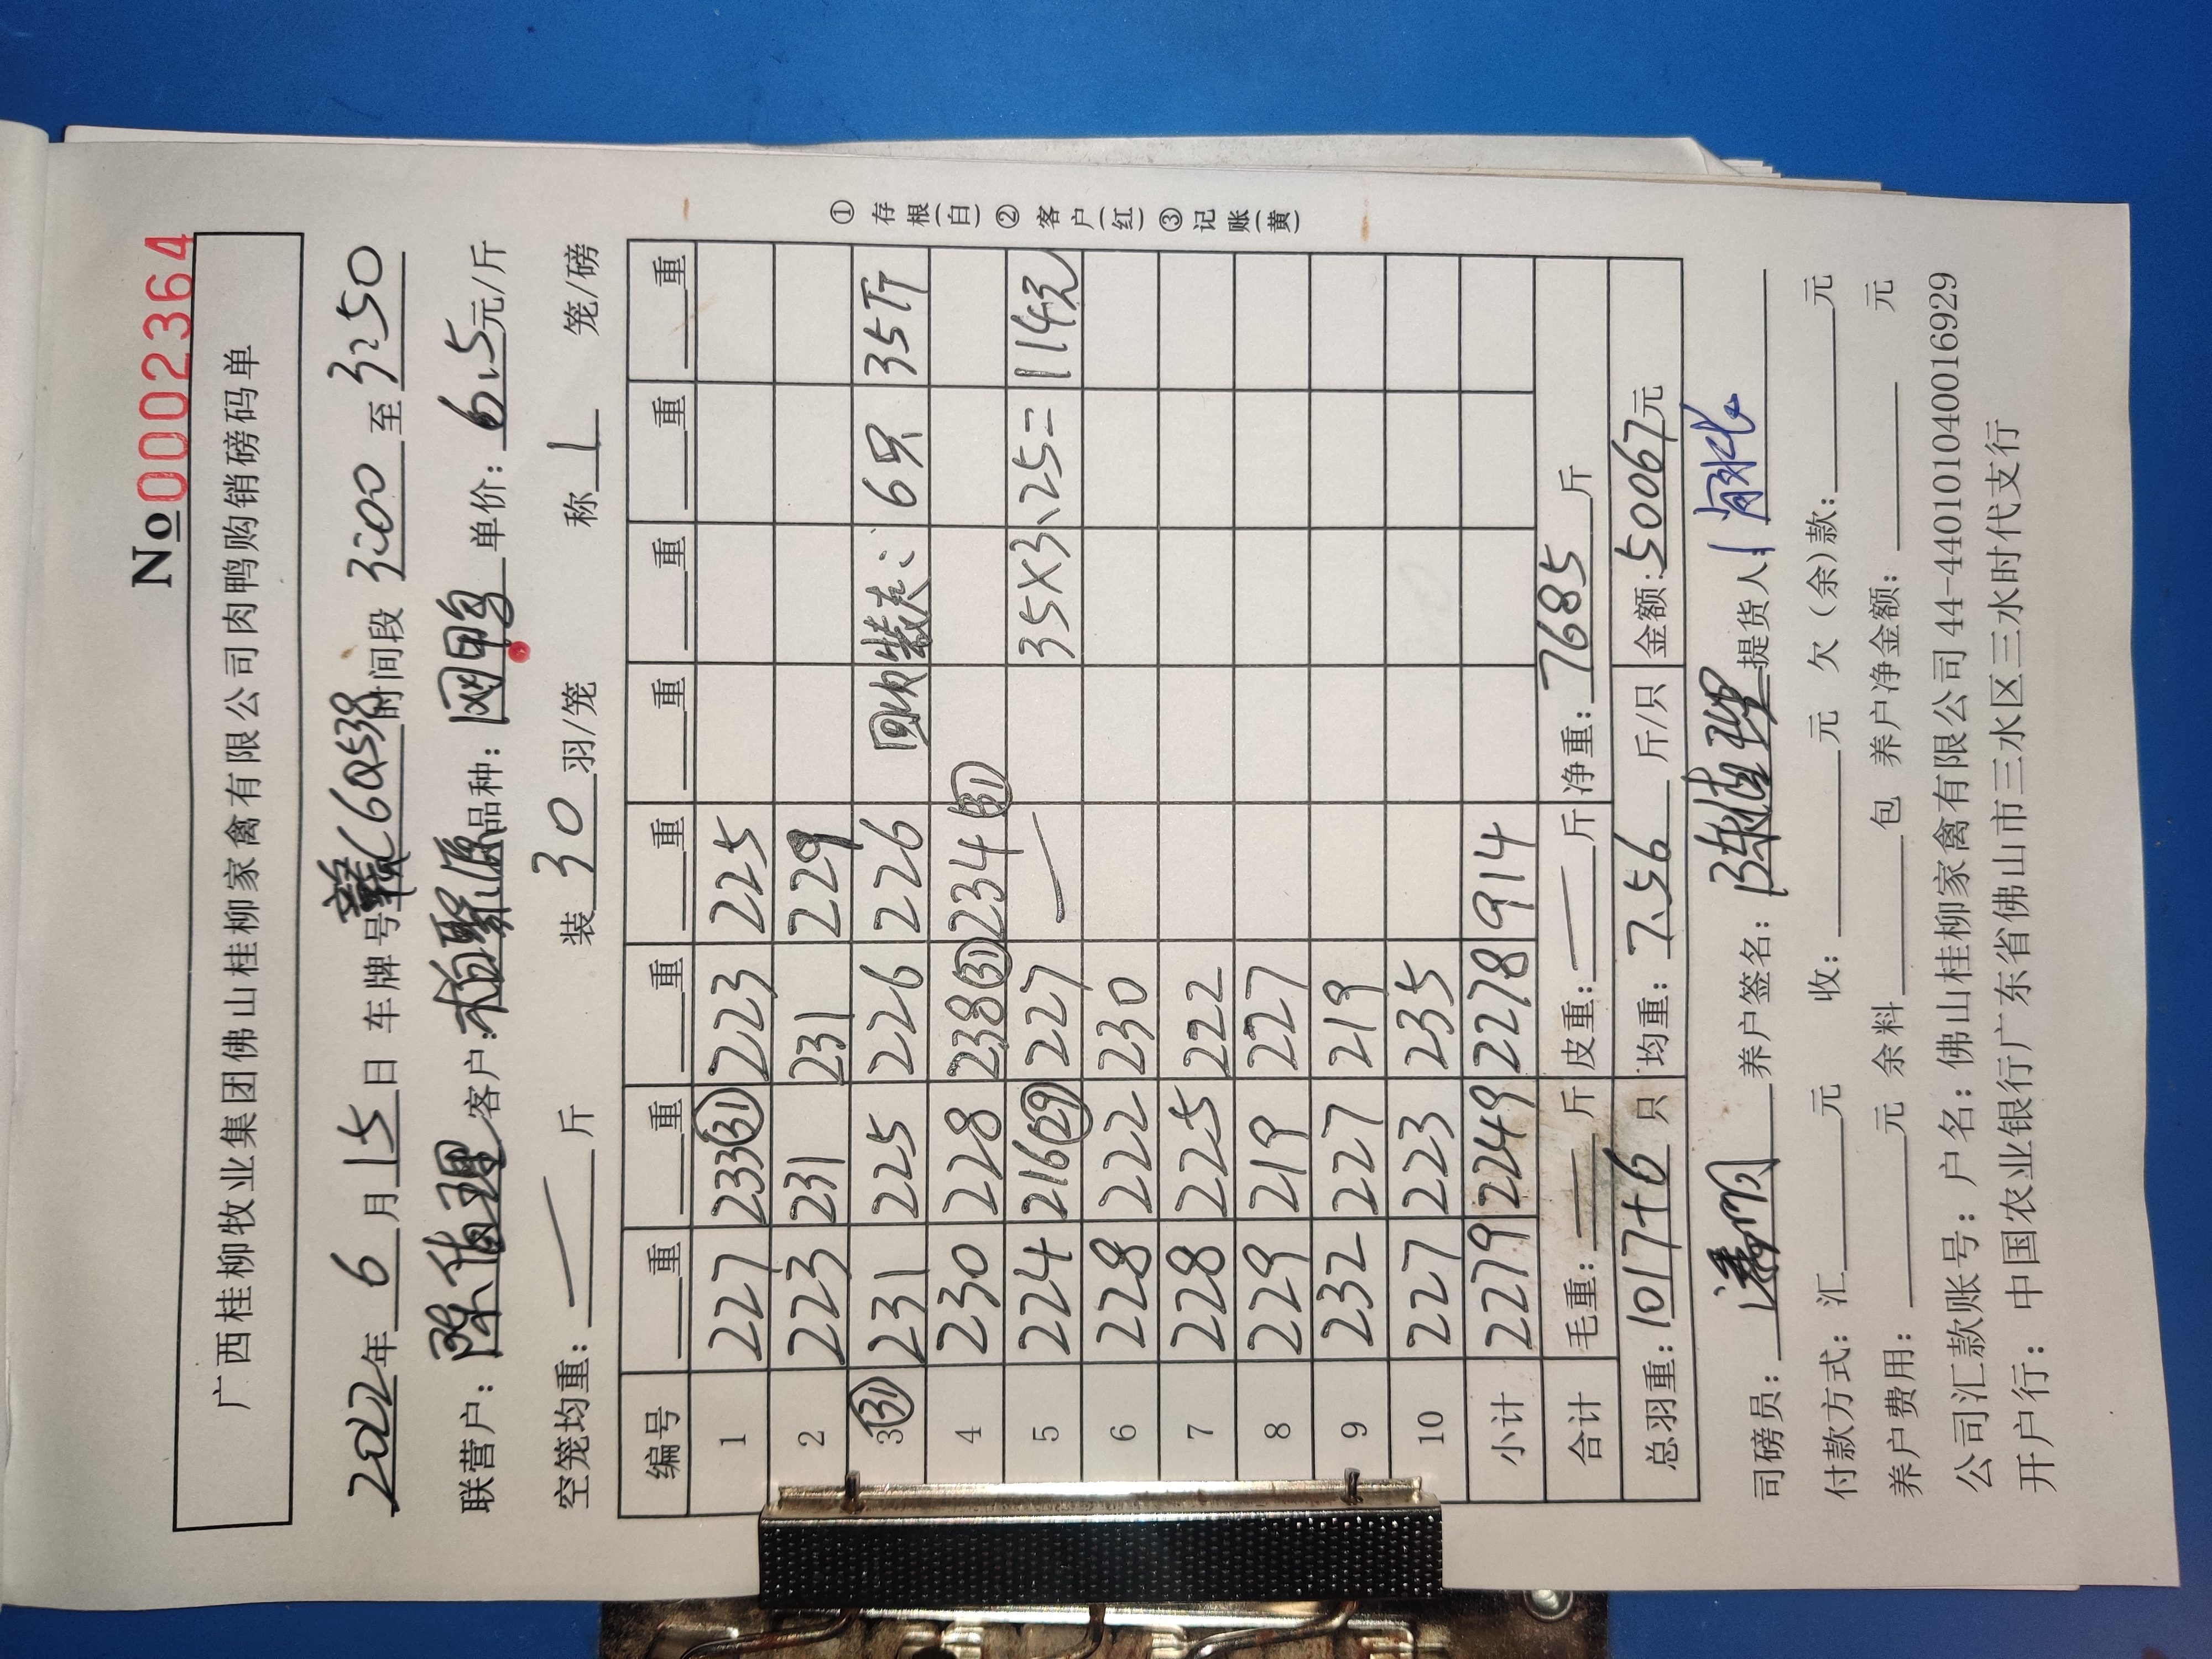 No 0002364
广西桂柳牧业集团佛山桂柳家禽有限公司肉鸭购销磅码单
2022年 6 月 15 日 车牌号 赣C6Q538 时间段 3:00 至 3:50
联营户: 客户: 柏聚源 品种: 网鸭 单价: 6.5 元/斤
空笼均重: — 斤 装 30 羽/笼 称 1 笼/磅
编号 重 重 重 重 重 重 重 重
1 227 233 31 223 225
2 223 231 231 229
3 31 231 225 226 226 6只 35斤
4 230 228 238 31 234 31
5 224 216 29 227 — 35×3.25= 114元
6 228 222 230
7 228 225 222
8 229 219 227
9 232 227 219
10 227 223 235
小计 2279 2249 2278 914
合计 毛重: — 斤 皮重: — 斤 净重: 7685 斤
总羽重: 1017+6 只 均重: 7.56 斤/只 金额: 50067元
司磅员: 养户签名: 陈植理 提货人:
付款方式: 汇 元 收: 元 欠(余)款: 元
养户费用: 元 余料 包 养户净金额: 元
公司汇款账号: 户名: 佛山桂柳家禽有限公司 44-440101040016929
开户行: 中国农业银行广东省佛山市三水区三水时代支行
①存根(白)②客户(红)③记账(黄)